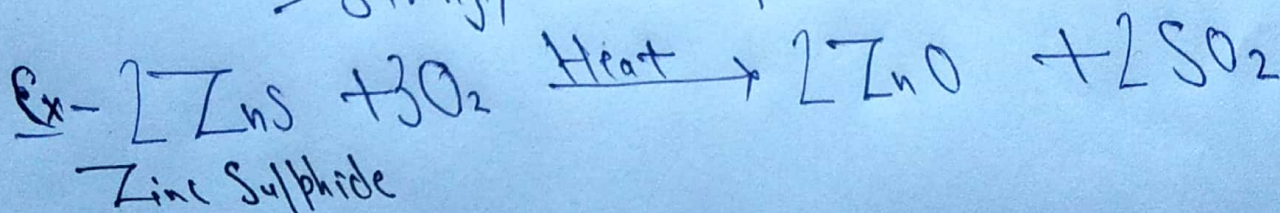 Ex- 2ZnS +3O₂ Heat → 2ZnO +2SO₂
Zinc Sulphide